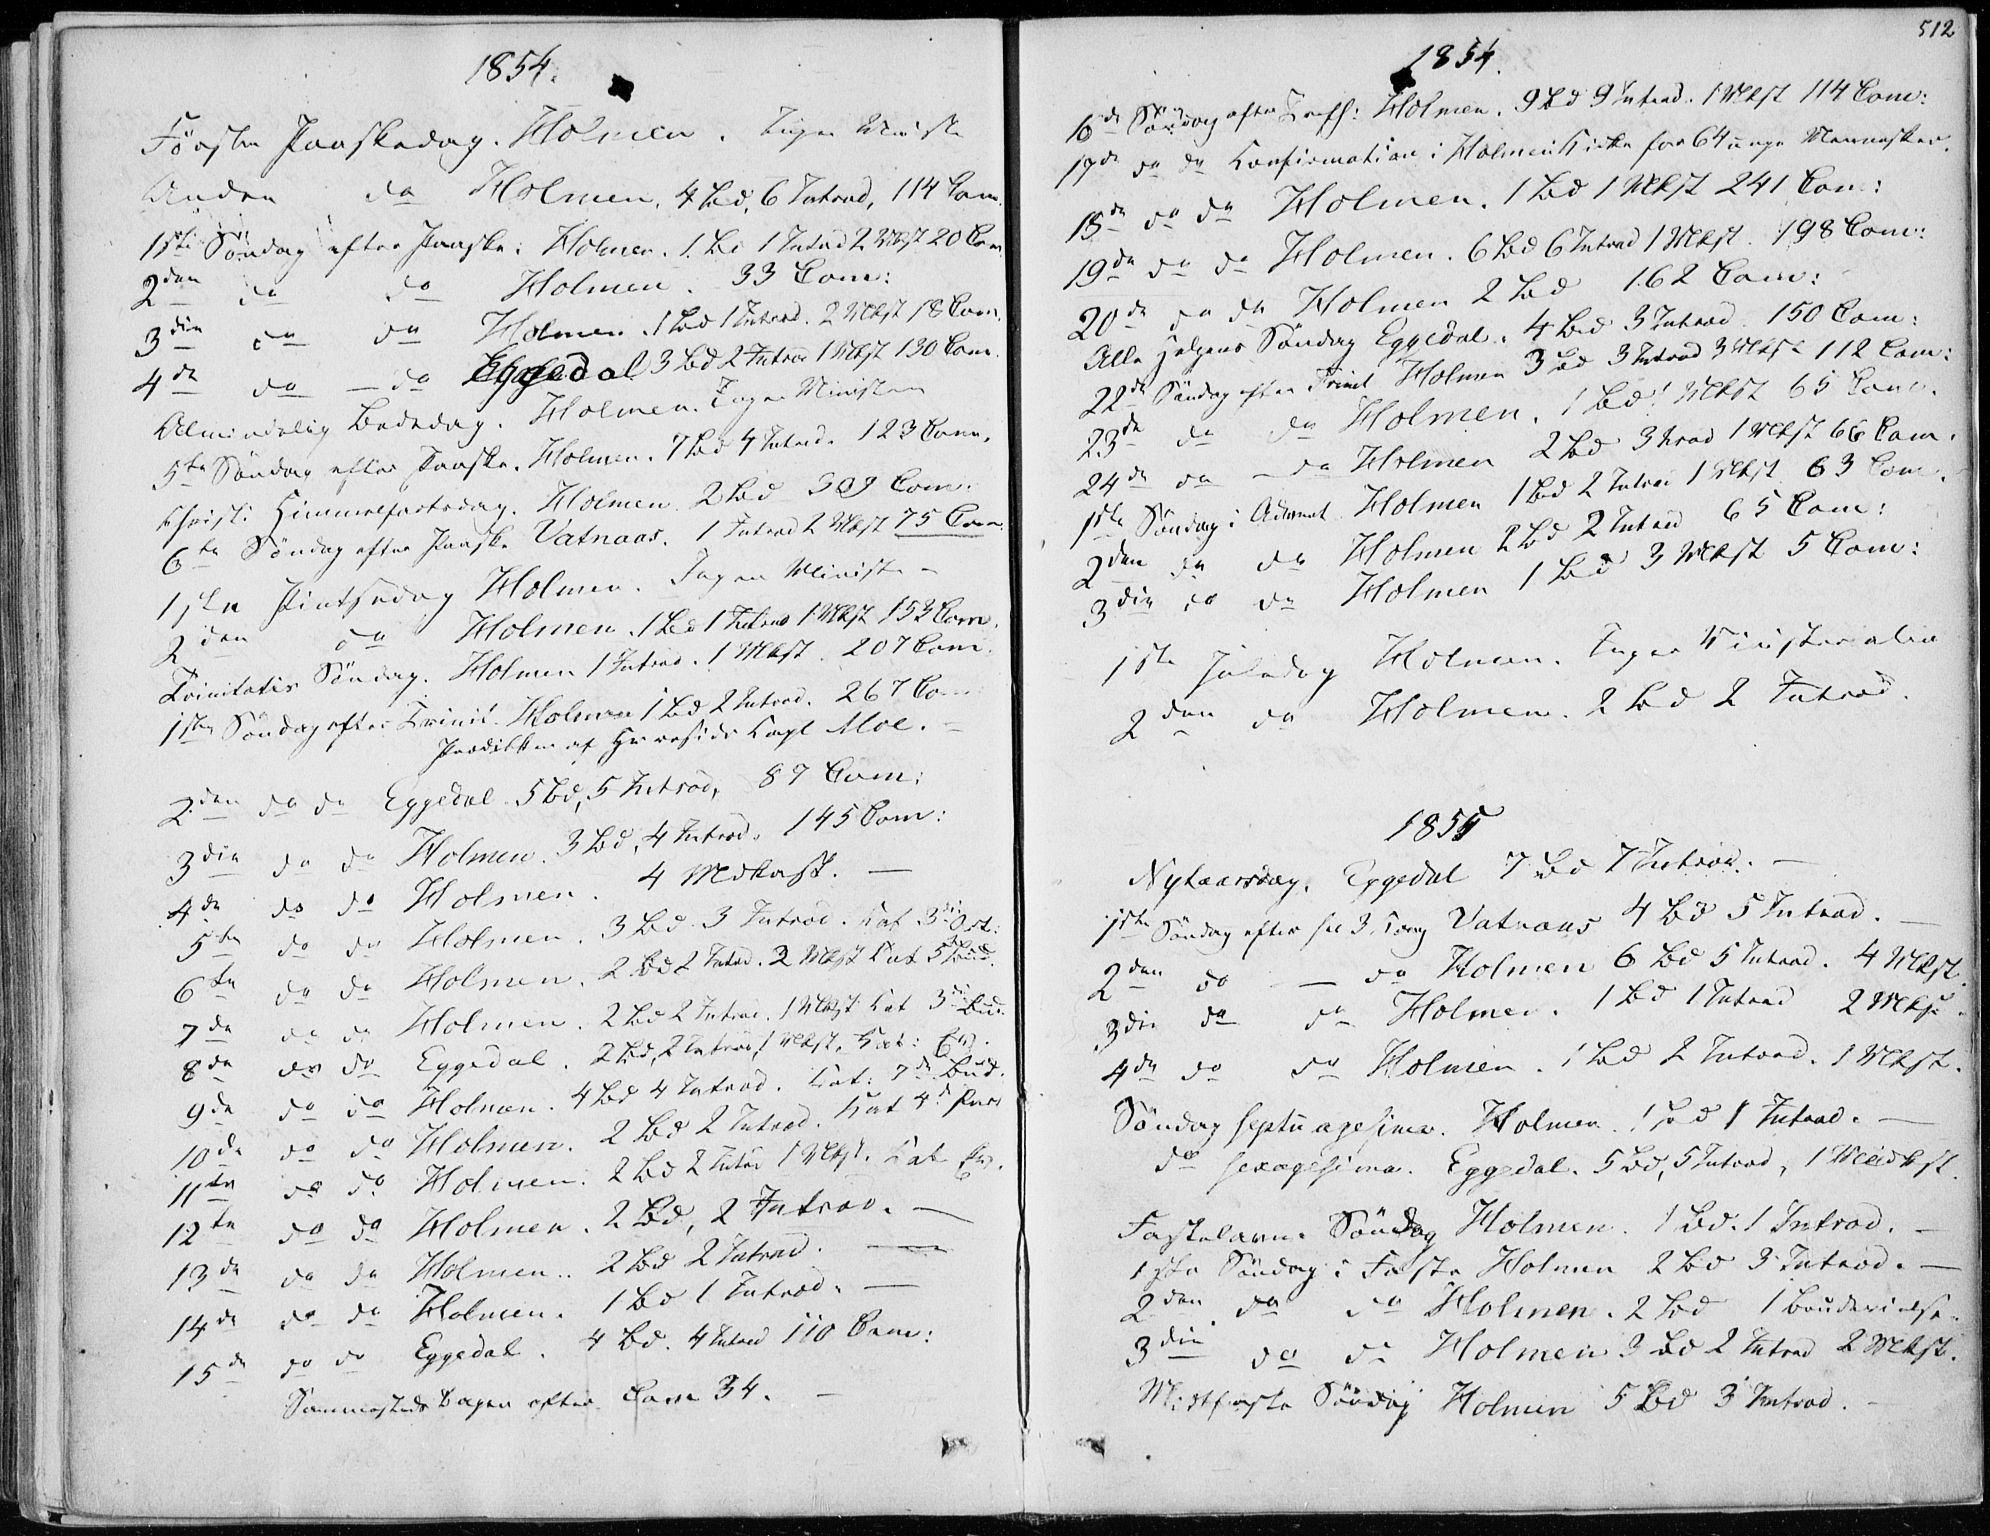 1854.
Første Paaskedag. Holmen. Ingen Ministr
Anden do Holmen, 4 Bd, 6 Introd, 114 Com.
1ste Søndag efter Paaske. Holmen. 1 Bd 1 Introd 2 Mkst 20 Com
2den do do Holmen. 33 Com:
3die do do Holmen. 1 Bd 1 Introd. 2 Mkst 18 Com.
4de do — do Eggedal 3 Bd 2 Introd 1 Mkst 130 Com.
Almindelig Bededag. Holmen. Ingen Ministr
5te Søndag efter Paaske. Holmen. 7 Bd 4 Introd. 123 Com.
Christi Himmelfartsdag. Holmen 2 Bd 309 Com:
6te Søndag efter Paaske Vatnaas. 1 Introd 2 Mkst 75 Com.
1ste Pintsedag Holmen. Ingen Ministr
2den do Holmen. 1 Bd 1 Introd 1 Mkst 153 Com.
Trinitatis Søndag. Holmen 1 Introd. 1 Mkst. 207 Com.
1ste Søndag efter Trinit. Holmen 1 Bd 2 Introd. 267 Com
Prædiken af Hr resid. Capl Moe. —
2den do do Eggedal. 5 Bd, 5 Introd, 87 Com:
3die do do Holmen. 3 Bd, 4 Introd. 145 Com:
4de do do Holmen. 4 Mdkast. —
5te do do Holmen. 3 Bd 3 Introd. Kat 3die Art:
6te do do Holmen. 2 Bd 2 Introd. 2 Mkst Kat 5te Bud.
7de do do Holmen. 2 Bd 2 Introd. 1 Mkst Kat 3die Bud.
8de do do Eggedal. 2 Bd, 2 Introd, 1 Mkst. Kat:
9de do do Holmen. 4 Bd 4 Introd. Kat: 7de Bud.
10de do do Holmen. 2 Bd 2 Introd. Kat 4de Part
11te do do Holmen. 2 Bd 2 Introd 1 Mkst. Kat
12te do do Holmen. 2 Bd, 2 Introd. —
13de do do Holmen. 2 Bd 2 Introd. —
14de do do Holmen. 1 Bd 1 Introd. —
15de do do Eggedal. 4 Bd. 4 Introd 110 Com:
Sammesteds Dagen efter Com 34. —
512
1854.
16de Søndag efter Tref: Holmen. 9 Bd 9 Introd. 1 Mkst 114 Com:
17de do do Confirmation i Holmen Kirke for 64 unge Mennesker.
18de do do Holmen. 1 Bd 1 Mkst 241 Com:
19de do do Holmen. 6 Bd 6 Introd 1 Mkst. 198 Com:
20de do do Holmen 2 Bd 162 Com:
Alle Helgens Søndag Eggedal. 4 Bd 3 Introd 150 Com:
22de Søndag efter Trinit Holmen 3 Bd 3 Introd 3 Mkst 112 Com:
23de do do Holmen. 1 Bd 1 Mkst 65 Com.
24de do — do Holmen 2 Bd 3 Itrod 1 Mkst 66 Com.
1ste Søndag i Advent Holmen 1 Bd 2 Introd 1 Mkst 63 Com.
2den do do Holmen 2 Bd 2 Introd 65 Com:
3die do do Holmen 1 Bd 3 Mkst 5 Com:
1ste Juledag Holmen. Ingen Ministerialia
2den do Holmen. 2 Bd 2 Introd.
1855
Nytaarsdag. Eggedal 7 Bd 7 Introd. —
1ste Søndag efter hel 3 Kong Vatnaas 4 Bd 5 Introd. —
2den do — do Holmen 6 Bd 5 Introd. 4 Mkst.
3die do do Holmen. 1 Bd 1 Introd 2 Mkst.
4de do do Holmen. 1 Bd 2 Introd. 1 Mkst.
Søndag Septuagesima. Holmen. 1 Bd 1 Introd. —
do sexagesima. Eggedal. 5 Bd, 5 Introd, 1 Meidkst.
Fastelavns Søndag Holmen. 1 Bd. 1 Introd. —
1ste Søndag i Faste Holmen 2 Bd 3 Introd. —
2den do do Holmen. 2 Bd 1 Brudevielse.
3die do do Holmen 3 Bd 2 Introd 2 Mkst.
Midtfaste Søndag Holmen 5 Bd 3 Introd. —